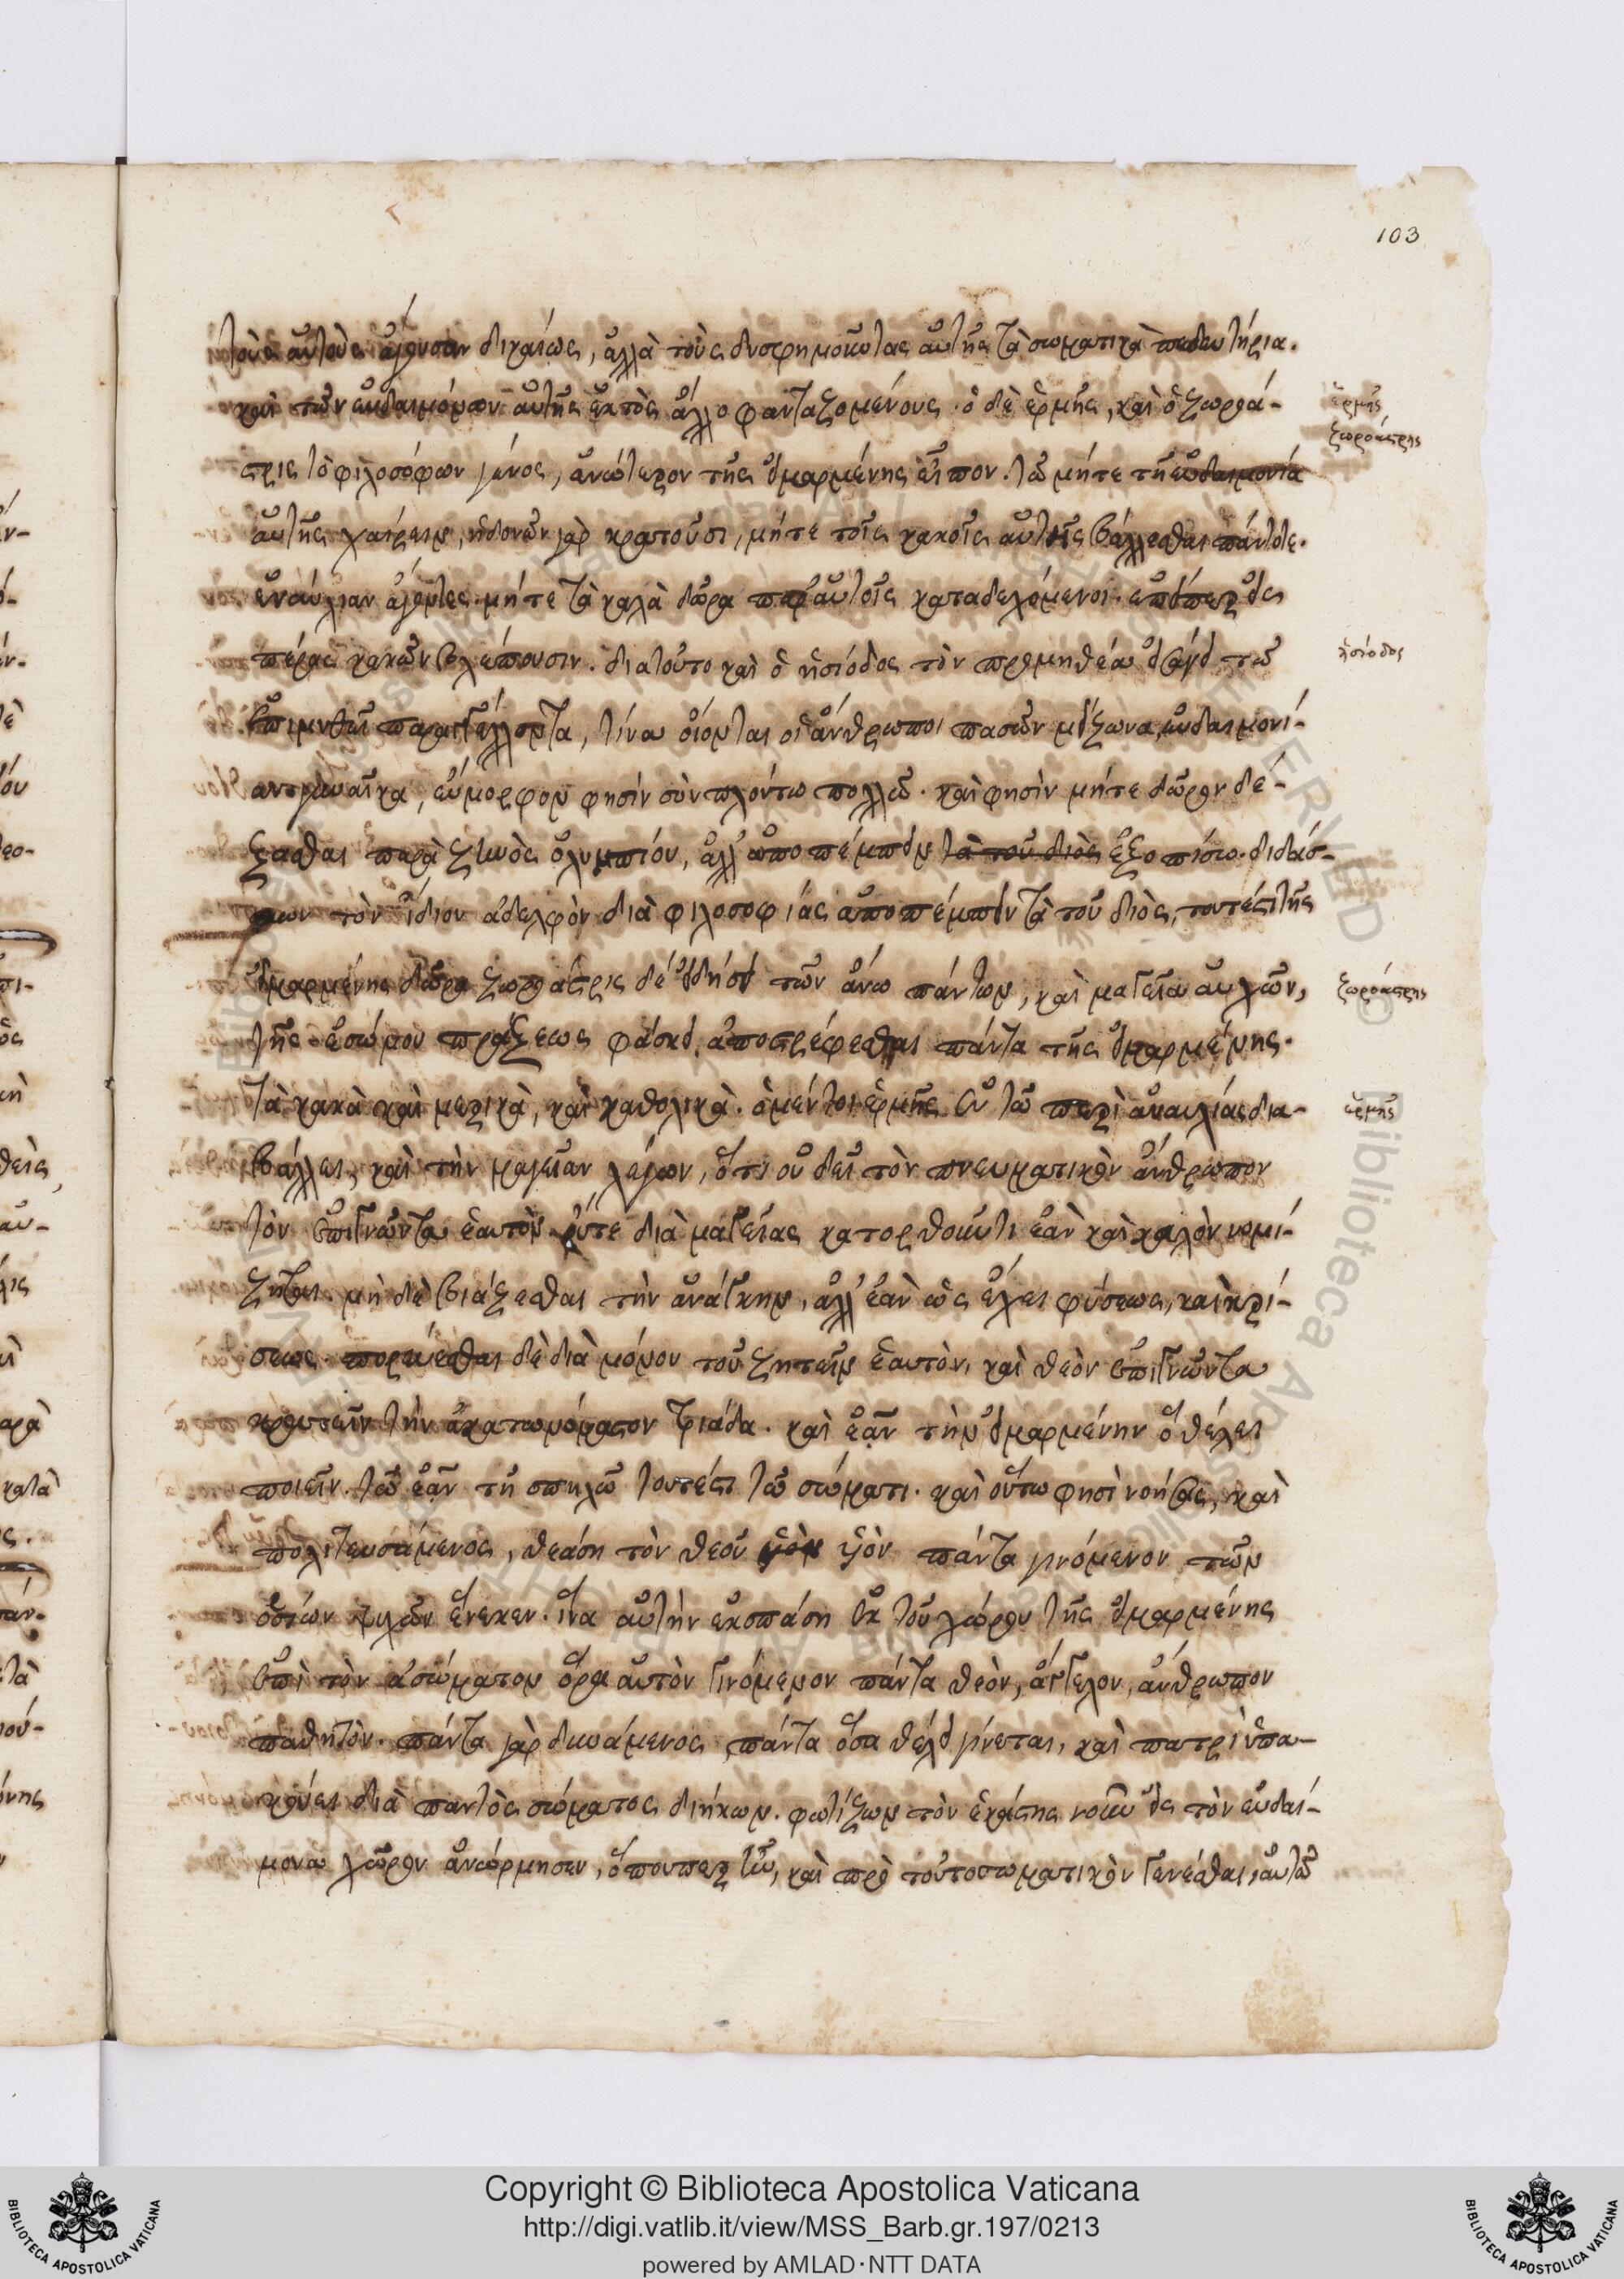 103
τοὺς αὐτοὺς ἄγουσαν δικαίως, ἀλλὰ τοὺς δυσφημοῦντας αὐτῆς τὰ σωματικὰ παιδευτήρια.
καὶ τῶν εὐδαιμόνων αὐτῆς ἐκτὸς ἄλλο φανταζομένους. ὁ δὲ ἑρμῆς, καὶ ὁ ζωροά-
ἑρμῆς
ζωροάστρης
στρις τὸ φιλοσόφων γένος, ἀνώτερον τῆς εἱμαρμένης εἶπον. τῶ μήτε τῆ εὐδαιμονία
αὐτῆς χαίρειν, ἡδονῶν γὰρ κρατοῦσι, μήτε τοῖς κακοῖς αὐτῆς βάλλεσθαι πάντοτε.
ἐναύλιαν ἄγοντες. μήτε τὰ καλὰ δῶρα παρ' αὐτοῖς καταδεχόμενοι. ἐπείπερ εἰς
πέρας κακῶν βλέπουσιν. διατοῦτο καὶ ὁ ἡσίοδος τὸν προμηθέα εἰσάγει τῶ
ἡσίοδος
ἐπιμηθεῖ παραγγέλλοντα, τίνα οἴονται οἱ ἄνθρωποι πασῶν μείζωνα εὐδαιμονί-
αν; γυναῖκα, εὔμορφον φησὶν σὺν πλούτω πολλῶ. καὶ φησὶν μήτε δῶρον δέ-
ξασθαι παρὰ ζηνὸς ὀλυμπίου, ἀλλ' ἀποπέμπειν τὰ τοῦ διὸς ἐξοπίσω. διδάσ-
κων τὸν ἴδιον ἀδελφὸν διὰ φιλοσοφίας ἀποπέμπειν τὰ τοῦ διὸς, τουτέστι τῆς
εἱμαρμένης δῶρα ζωροάστρις δὲ εἰδήσει τῶν ἄνω πάντων, καὶ μαγεία αὐχῶν,
ζωροάστρης
τῆς ἐσώμου πράξεως φάσκει ἀποστρέφεσθαι πάντα τῆς εἱμαρμένης.
τὰ κακὰ καὶ μερικὰ, καὶ καθολικὰ. ὁ μέντοι ἑρμῆς ἐν τῶ περὶ ἀναυλίας δια-
ἑρμῆς
βάλλει, καὶ τὴν μαγείαν λέγων, ὅτι οὐ δεῖ τὸν πνευματικὸν ἄνθρωπον
τὸν ἐπιγνῶντα ἑαυτὸν οὔτε διὰ μαγείας κατορθοῦν τι ἐὰν καὶ καλὸν νομί-
ζηται. μὴ δὲ βιάζεσθαι τὴν ἀνάγκην, ἀλλ' ἐὰν ὡς ἔχει φύσεως, καὶ κρί-
σεως. πορεύεσθαι δὲ διὰ μόνου τοῦ ζητεῖν ἑαυτὸν, καὶ θεὸν ἐπιγνῶντα
κρατεῖν τὴν ἀκατωνόμαστον τριάδα. καὶ ἐᾶν τὴν εἱμαρμένην ὃ θέλει
ποιεῖν. τῶ ἐᾶν τῆ σπηλῶ τουτέστι τῶ σώματι. καὶ οὕτω φησὶ νοήσας, καὶ
πολιτευσάμενος, θεάση τὸν θεοῦ υἱὸν πάντα γινόμενον τῶν
ὁσίων ψυχῶν ἕνεκεν. ἵνα αὐτὴν ἐκσπάση ἐκ τοῦ χώρου τῆς εἱμαρμένης
ἐπὶ τὸν ἀσώματον ὅρα αὐτὸν γινόμενον πάντα θεὸν, ἄγγελον, ἄνθρωπον
παθητὸν. πάντα γὰρ δυνάμενος πάντα ὅσα θέλει γίνεται, καὶ πατρὶ ὑπα-
κούει διὰ παντὸς σώματος διήκων. φωτίζων τὸν ἑκάστης νοῦν εἰς τὸν εὐδαί-
μονα χῶρον ἀνώρμησεν, ὅπουπερ ἦν, καὶ πρὸ τοῦ τὸ σωματικὸν γενέσθαι, αὐτῶ
Copyright © Biblioteca Apostolica Vaticana
http://digi.vatlib.it/view/MSS_Barb.gr.197/0213
powered by AMLAD·NTT DATA
BIBLIOTECA APOSTOLICA VATICANA
BIBLIOTECA APOSTOLICA VATICANA